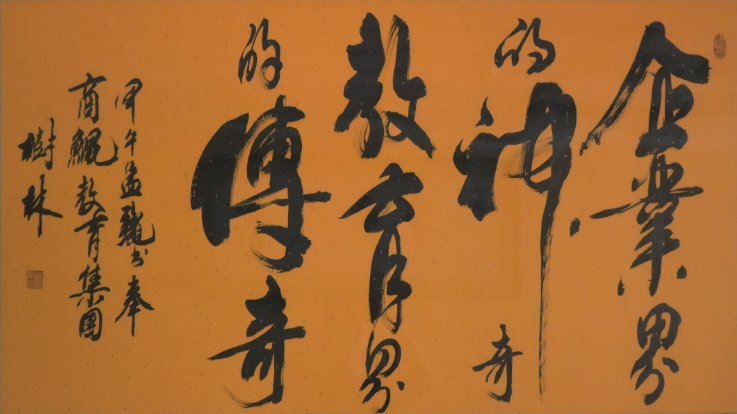 企業界
的神奇
教育界
的傳奇
甲午孟龝书奉
商鯤教育集团
樹林